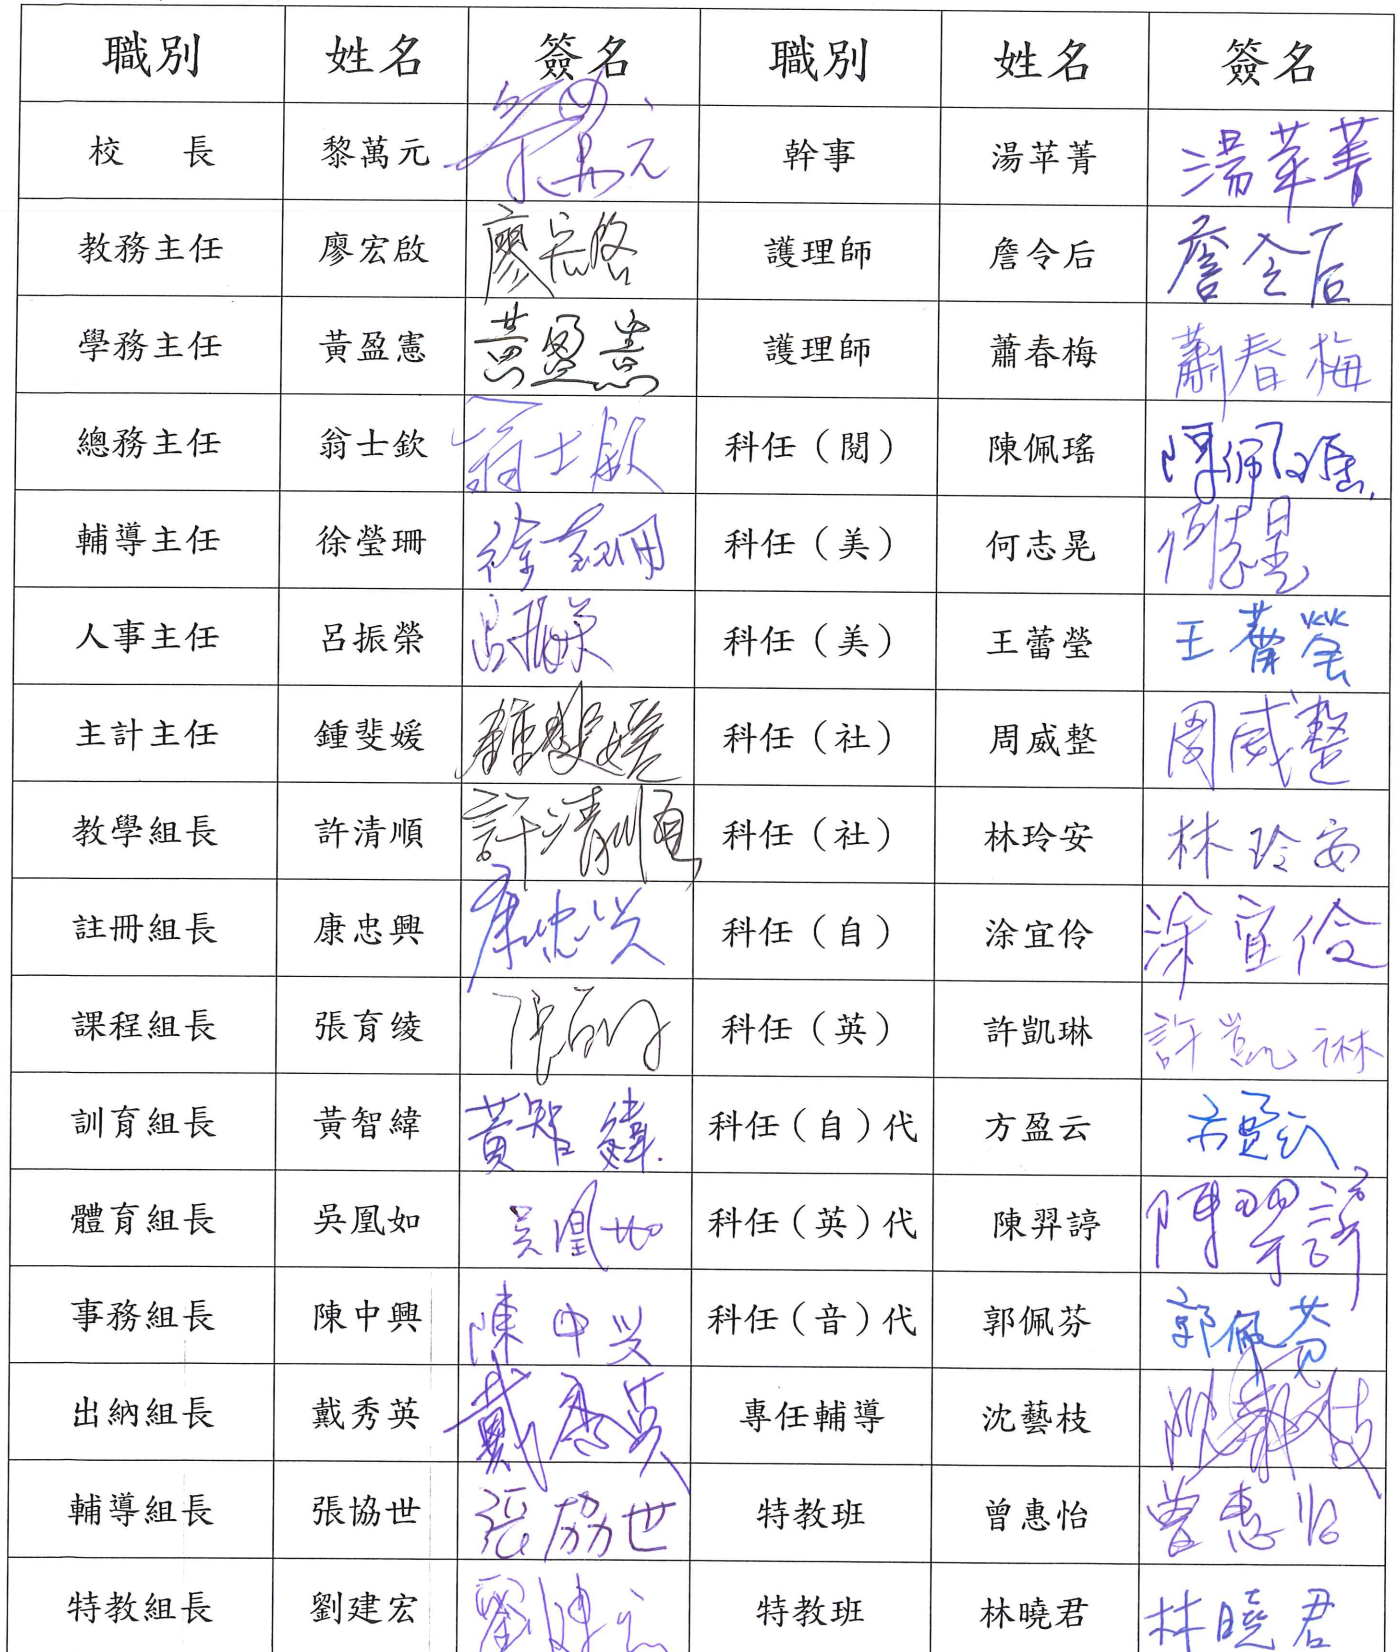 職別 姓名 簽名 職別 姓名 簽名
校 長 黎萬元 黎萬元 幹事 湯苹菁 湯苹菁
教務主任 廖宏啟 廖宏啟 護理師 詹令后 詹令后
學務主任 黃盈憲 黃盈憲 護理師 蕭春梅 蕭春梅
總務主任 翁士欽 翁士欽 科任（閱） 陳佩瑤 陳佩瑤
輔導主任 徐瑩珊 徐瑩珊 科任（美） 何志晃 何志晃
人事主任 呂振榮 呂振榮 科任（美） 王蕾瑩 王蕾瑩
主計主任 鍾斐媛 鍾斐媛 科任（社） 周威整 周威整
教學組長 許清順 許清順 科任（社） 林玲安 林玲安
註冊組長 康忠興 康忠兴 科任（自） 涂宜伶 涂宜伶
課程組長 張育绫 科任（英） 許凱琳 許凱琳
訓育組長 黃智緯 黃智緯 科任（自）代 方盈云 方盈云
體育組長 吳凰如 吳凰如 科任（英）代 陳羿諄 陳羿諄
事務組長 陳中興 陳中兴 科任（音）代 郭佩芬 郭佩芬
出納組長 戴秀英 戴秀英 專任輔導 沈藝枝 沈藝枝
輔導組長 張協世 張協世 特教班 曾惠怡 曾惠怡
特教組長 劉建宏 劉建宏 特教班 林曉君 林曉君